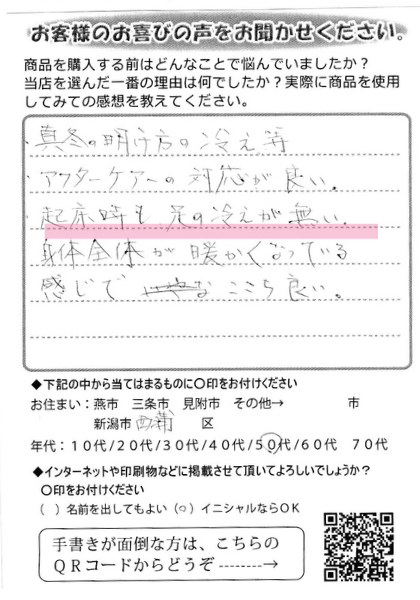 お客様のお喜びの声をお聞かせください。
商品を購入する前はどんなことで悩んでいましたか？
当店を選んだ一番の理由は何でしたか？実際に商品を使用
してみての感想を教えてください。
・真冬の明け方の冷え等
・アフターケアーの対応が良い。
・起床時も足の冷えが無い。
身体全体が暖かくなっている
感じで ここち良い。
◆下記の中から当てはまるものに〇印をお付けください
お住まい：燕市 三条市 見附市 その他→ 市
新潟市 西蒲 区
年代：１０代/２０代/３０代/４０代/５０代/６０代 ７０代
◆インターネットや印刷物などに掲載させて頂いてよろしいでしょうか？
〇印をお付けください
（ ）名前を出してもよい（○）イニシャルならＯＫ
手書きが面倒な方は、こちらの
ＱＲコードからどうぞ--------→